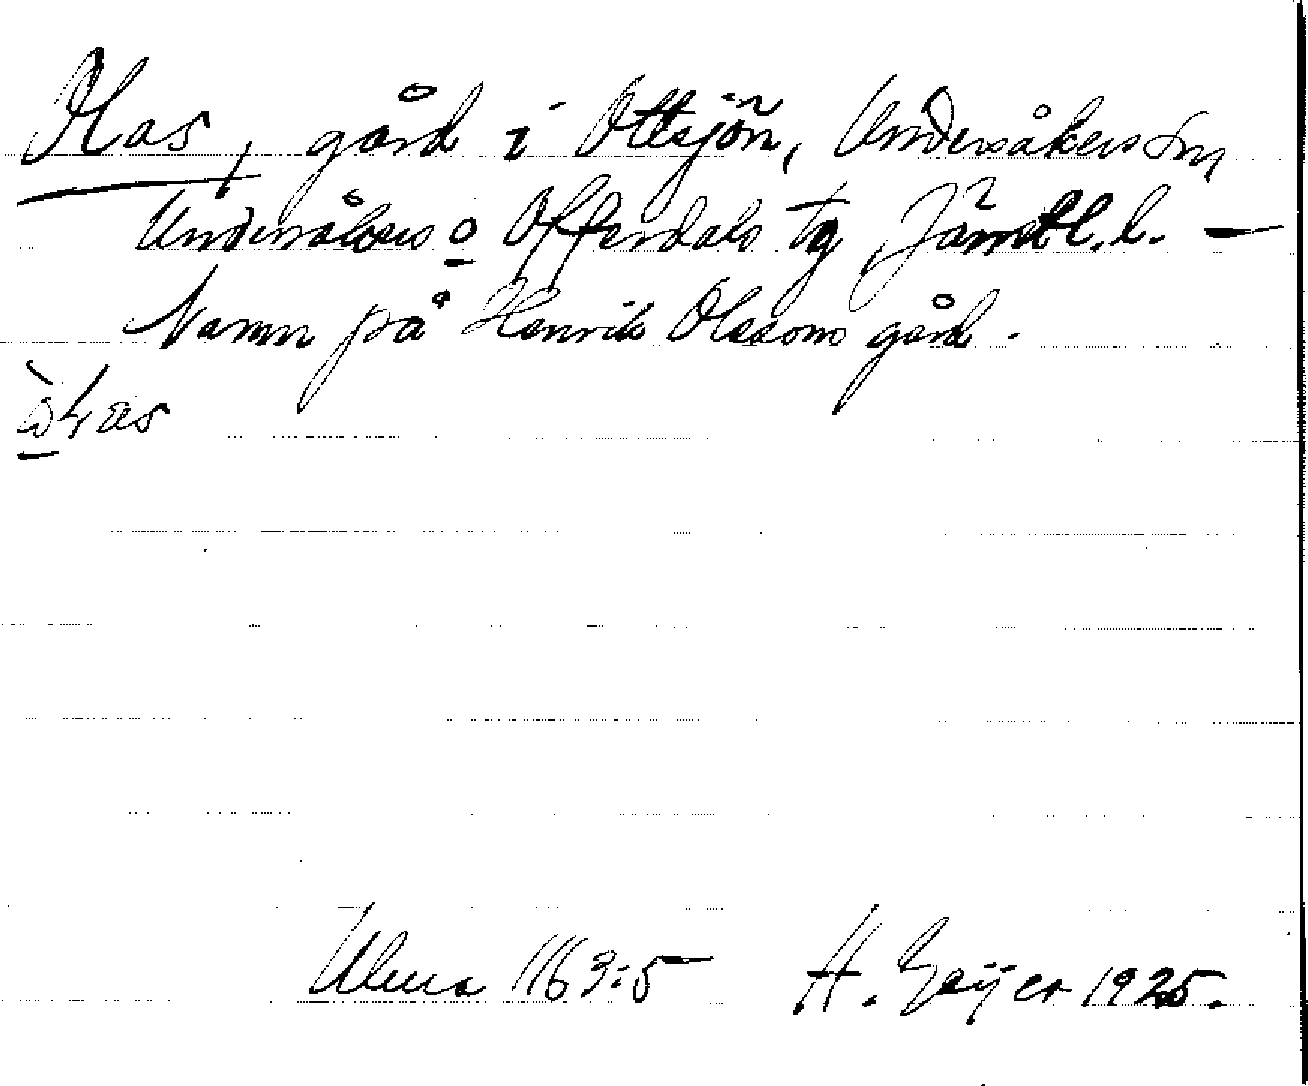 Olas, gård i Ottsjön, Undersåkers sn,
Undersåkers o Offerdals tg Jämtl. l. –
Namn på Henrik Olssons gård.
Ulma 1163:5 H. Geijer 1925.